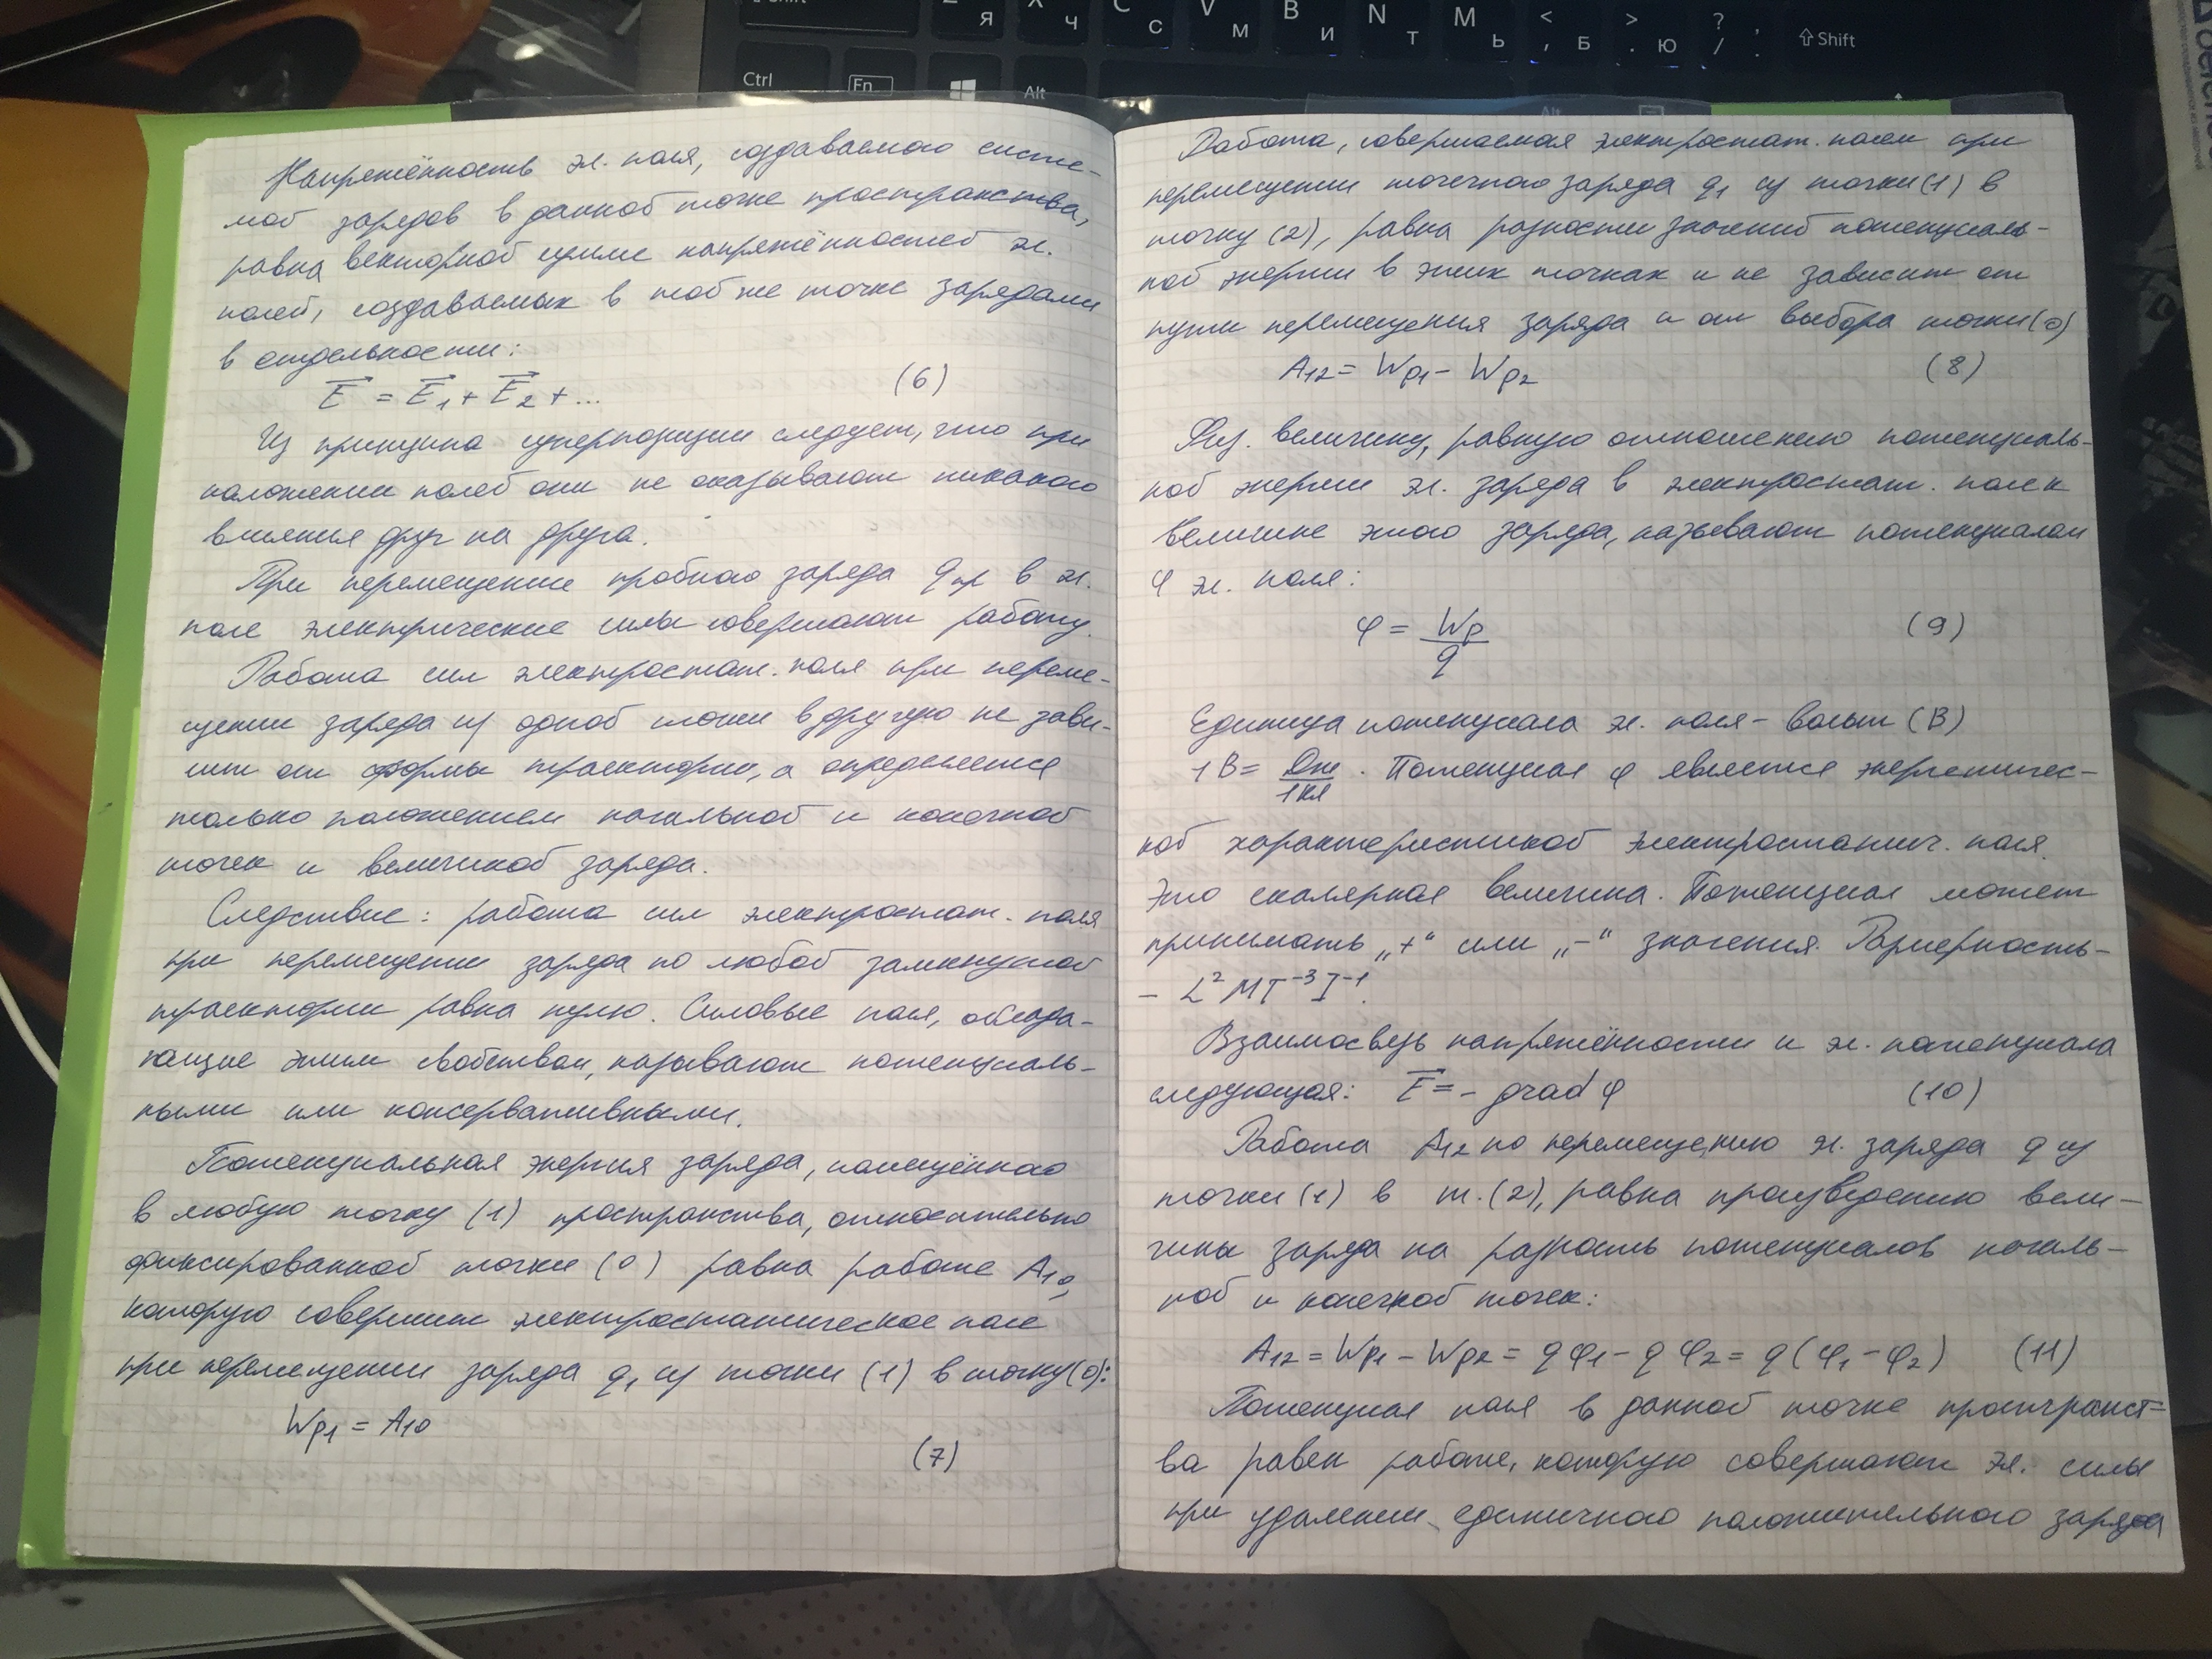 Shift
Z Я
X Ч
C С
V М
B И
N Т
M Ь
< , Б
> . Ю
? / .
⇧Shift
Ctrl
Fn
Alt
Alt
Напряжённость эл. поля, создаваемого систе-
мой зарядов в данной точке пространства,
равна векторной сумме напряжённостей эл.
полей, создаваемых в той же точке зарядами
в отдельности:
E⃗ = E⃗₁ + E⃗₂ + ... (6)
Из принципа суперпозиции следует, что при
наложении полей они не оказывают никакого
влияния друг на друга.
При перемещение пробного заряда qпр в эл.
поле электрические силы совершают работу.
Работа сил электростат. поля при переме-
щении заряда из одной точки в другую не зави-
сит от формы траектории, а определяется
только положением начальной и конечной
точек и величиной заряда.
Следствие: работа сил электростат. поля
при перемещении заряда по любой замкнутой
траектории равна нулю. Силовые поля, облада-
ющие этим свойством, называют потенциаль-
ными или консервативными.
Потенциальная энергия заряда, помещённого
в любую точку (1) пространства, относительно
фиксированной точки (0) равна работе A₁₀,
которую совершит электростатическое поле
при перемещении заряда q, из точки (1) в точку (0):
Wp₁ = A₁₀
(7)
Работа, совершаемая электростат. полем при
перемещении точечного заряда q, из точки (1) в
точку (2), равна разности значений потенциаль-
ной энергии в этих точках и не зависит от
пути перемещения заряда и от выбора точки (0)
A₁₂ = Wp₁ - Wp₂ (8)
Физ. величину, равную отношению потенциаль-
ной энергии эл. заряда в электростат. поле к
величине этого заряда, называют потенциалом
φ эл. поля:
φ = Wp/q (9)
Единица потенциала эл. поля - вольт (В)
1 В = Дж/1Кл. Потенциал φ является энергетичес-
кой характеристикой электростатич. поля.
Это скалярная величина. Потенциал может
принимать „+“ или „-“ значения. Размерность-
- L²MT⁻³I⁻¹.
Взаимосвязь напряжённости и эл. потенциала
следующая: E⃗ = - grad φ (10)
Работа A₁₂ по перемещению эл. заряда q из
точки (1) в т. (2), равна произведению вели-
чины заряда на разность потенциалов началь-
ной и конечной точек:
A₁₂ = Wp₁ - Wp₂ = qφ₁ - qφ₂ = q(φ₁ - φ₂) (11)
Потенциал поля в данной точке пространст-
ва равен работе, которую совершают эл. силы
при удалении единичного положительного заряда